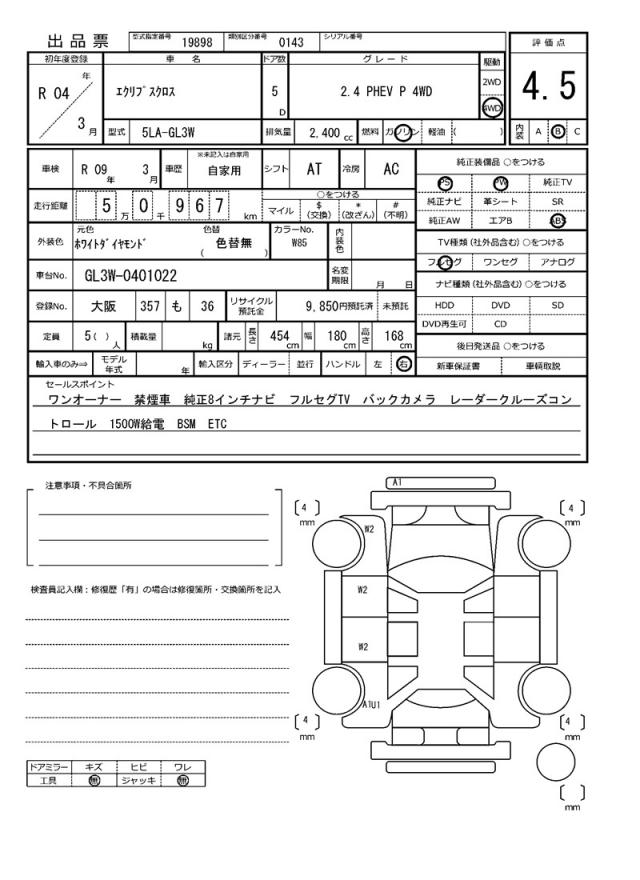 出品票 型式指定番号 19898 類別区分番号 0143 シリアル番号
評価点
4.5
内装 A B C
初年度登録 車名 ドア数 グレード 駆動
R 04 年 3 月
エクリプスクロス 5 D 2.4 PHEV P 4WD 2WD 4WD
型式 5LA-GL3W 排気量 2,400 cc 燃料 ガソリン 軽油 ( )
車検 R 09 年 3 月 車歴 ※未記入は自家用 自家用 シフト AT 冷房 AC
走行距離 5 万 0 千 9 6 7 km
○をつける
マイル $ (交換) * (改ざん) # (不明)
外装色 元色 ホワイトダイヤモンド 色替 ( 色替無 ) カラーNo. W85 内装色
車台No. GL3W-0401022 名変期限 月 日
登録No. 大阪 357 も 36 リサイクル預託金 9,850円預託済 未預託
定員 5( ) 人 積載量 kg 諸元 長さ 454 cm 幅 180 cm 高さ 168 cm
輸入車のみ⇒ モデル年式 年 輸入区分 ディーラー 並行 ハンドル 左 右
純正装備品 ○をつける
PS PW 純正TV
純正ナビ 革シート SR
純正AW エアB ABS
TV種類 (社外品含む) ○をつける
フルセグ ワンセグ アナログ
ナビ種類 (社外品含む) ○をつける
HDD DVD SD
DVD再生可 CD
後日発送品 ○をつける
新車保証書 車輌取説
セールスポイント
ワンオーナー 禁煙車 純正8インチナビ フルセグTV バックカメラ レーダークルーズコン
トロール 1500W給電 BSM ETC
注意事項・不具合箇所
検査員記入欄：修復歴「有」の場合は修復箇所・交換箇所を記入
A1
[ 4 ] mm
[ 4 ] mm
W2
W2
W2
A1U1
[ 4 ] mm
[ 4 ] mm
[ ] mm
ドアミラー キズ ヒビ ワレ
工具 無 ジャッキ 無